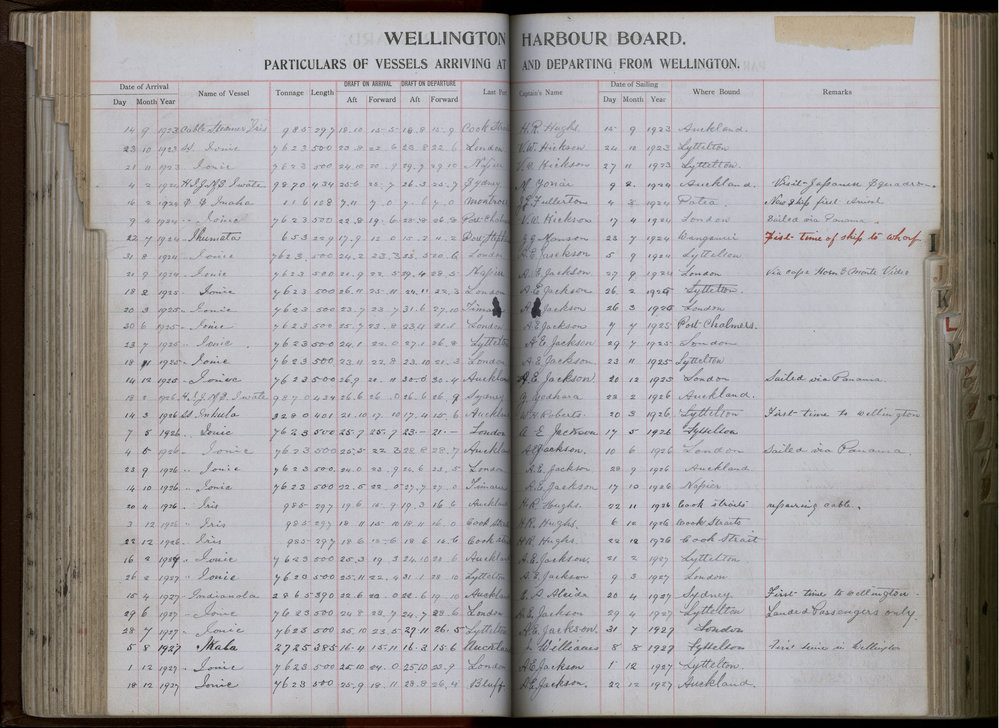 WELLINGTON HARBOUR BOARD.
PARTICULARS OF VESSELS ARRIVING AT AND DEPARTING FROM WELLINGTON.
Date of Arrival Name of Vessel Tonnage Length DRAFT ON ARRIVAL DRAFT ON DEPARTURE Last Port Captain's Name Date of Sailing Where Bound Remarks
Day Month Year Aft Forward Aft Forward Day Month Year
14 9 1923 Cable Steamer Iris 985 297 18.10 15-5 18.8 15.9 Cook Strait H.R. Hughs. 15 9 1923 Auckland.
23 10 1923 SS. Ionic 7623 500 London V.W. Hickson 24 10 1923 Lyttelton
21 11 1923 Ionic 7623 500 Napier V.W. Hickson 27 11 1923 Lyttelton.
4 2 1924 H.I.J.M.S. Iwate 9870 434 Sydney M. 9 2 1924 Auckland. Visit Japanese Squadron.
16 2 1924 116 108 7.11 7.0 7.6 7.0 Montrose Fullerton 4 3 1924 Patea New Ship first
9 4 1924 Ionic 7623 500 Port Chalm V.W. Hickson 17 4 1924 London Sailed via Panama.
22 7 1924 Ihumata 653 229 17.9 Port Stephens 23 7 1924 Wangaui First time of ship to wharf
31 8 1924 Ionic 7623 500 24.2 23.3 London A.E. Jackson 5 9 1924 Lyttelton
21 9 1924 Ionic 7623 500 21.9 22.5 Napier A.E. Jackson 27 9 1924 London via Cape Horn & Monte Video
18 2 1925 Ionic 7623 500 26.11 25.11 24.11 22.3 London A.E. Jackson 26 2 1925 Lyttelton.
20 3 1925 Ionic 7623 500 23.7 23.7 31.6 27.10 Timaru A.E. Jackson 26 3 1925 London
30 6 1925 Ionic 7623 500 25.7 23.8 London A.E. Jackson 7 7 1925 Port Chalmers.
23 7 1925 Ionic 7623 500 24.1 22.0 27.1 26.8 Lyttelton A.E. Jackson 29 7 1925 London
18 11 1925 Ionic 7623 500 23.11 22.8 23.10 21.3 London A.E. Jackson 23 11 1925 Lyttelton
14 12 1925 Ionic 7623 500 26.9 30.0 30.4 Auckland A.E. Jackson. 20 12 1925 London Sailed via Panama
18 2 1926 H.I.J.M.S. Iwate 9870 434 26.6 26.0 26.6 26.9 Sydney 23 2 1926 Auckland.
14 3 1926 SS Inkula 401 21.10 17.10 17.4 15.6 Auckland W.H. Roberts. 20 3 1926 Lyttelton First time to Wellington
7 5 1926 Ionic 7623 500 25.7 25.7 23.- 21.- London A E Jackson 17 5 1926 Lyttelton
4 6 1926 Ionic 7623 500 25.5 22.3 28.8 28.7 Auckland A.E. Jackson. 10 6 1926 London Sailed via Panama.
23 9 1926 Ionic 7623 500 24.0 23.9 24.6 23.5 London A.E. Jackson 28 9 1926 Auckland
14 10 1926 Ionic 7623 500 22.5 22.0 27.7 27.0 Timaru A.E. Jackson 17 10 1926 Napier
20 4 1926 Iris 985 297 19.6 15.9 19.3 16.6 Auckland H.R. Hughs. 22 11 1926 Cook Straits repairing cable.
3 12 1926 Iris 985 297 18.11 15.11 18.11 16.0 Cook Strait H.R. Hughs. 6 12 1926 Cook Straits
22 12 1926 Iris 985 297 18.6 15.6 18.6 15.6 Cook Strait H.R. Hughs. 22 12 1926 Cook Strait
16 2 1927 Ionic 7623 500 25.3 19.3 24.10 Auckland A.E. Jackson. 21 2 1927 Lyttelton
26 2 1927 Ionic 7623 500 25.11 22.9 31.1 28.10 Lyttelton A.E. Jackson 9 3 1927 London
15 4 1927 Indianola 2865 390 22.6 22.0 22.6 19.10 Auckland 20 4 1927 Sydney First time to Wellington.
29 6 1927 Ionic 7623 500 24.8 23.7 24.7 23.6 London A.E. Jackson 29 4 1927 Lyttelton Landed Passengers only
28 7 1927 Ionic 7623 500 25.10 23.5 29.11 26.5 Lyttelton A.E. Jackson. 31 7 1927 London
5 8 1927 2725 385 16.4 15.11 16.3 15.6 Auckland Williams 8 8 1927 Lyttelton First time in Wellington
1 12 1927 Ionic 7623 500 25.10 24.0 25.10 23.9 London A.E. Jackson 1 12 1927 Lyttelton.
18 12 1927 Ionic 7623 500 25.9 18.11 28.8 26.4 Bluff A.E. Jackson. 22 12 1927 Auckland.
I
J
K
L